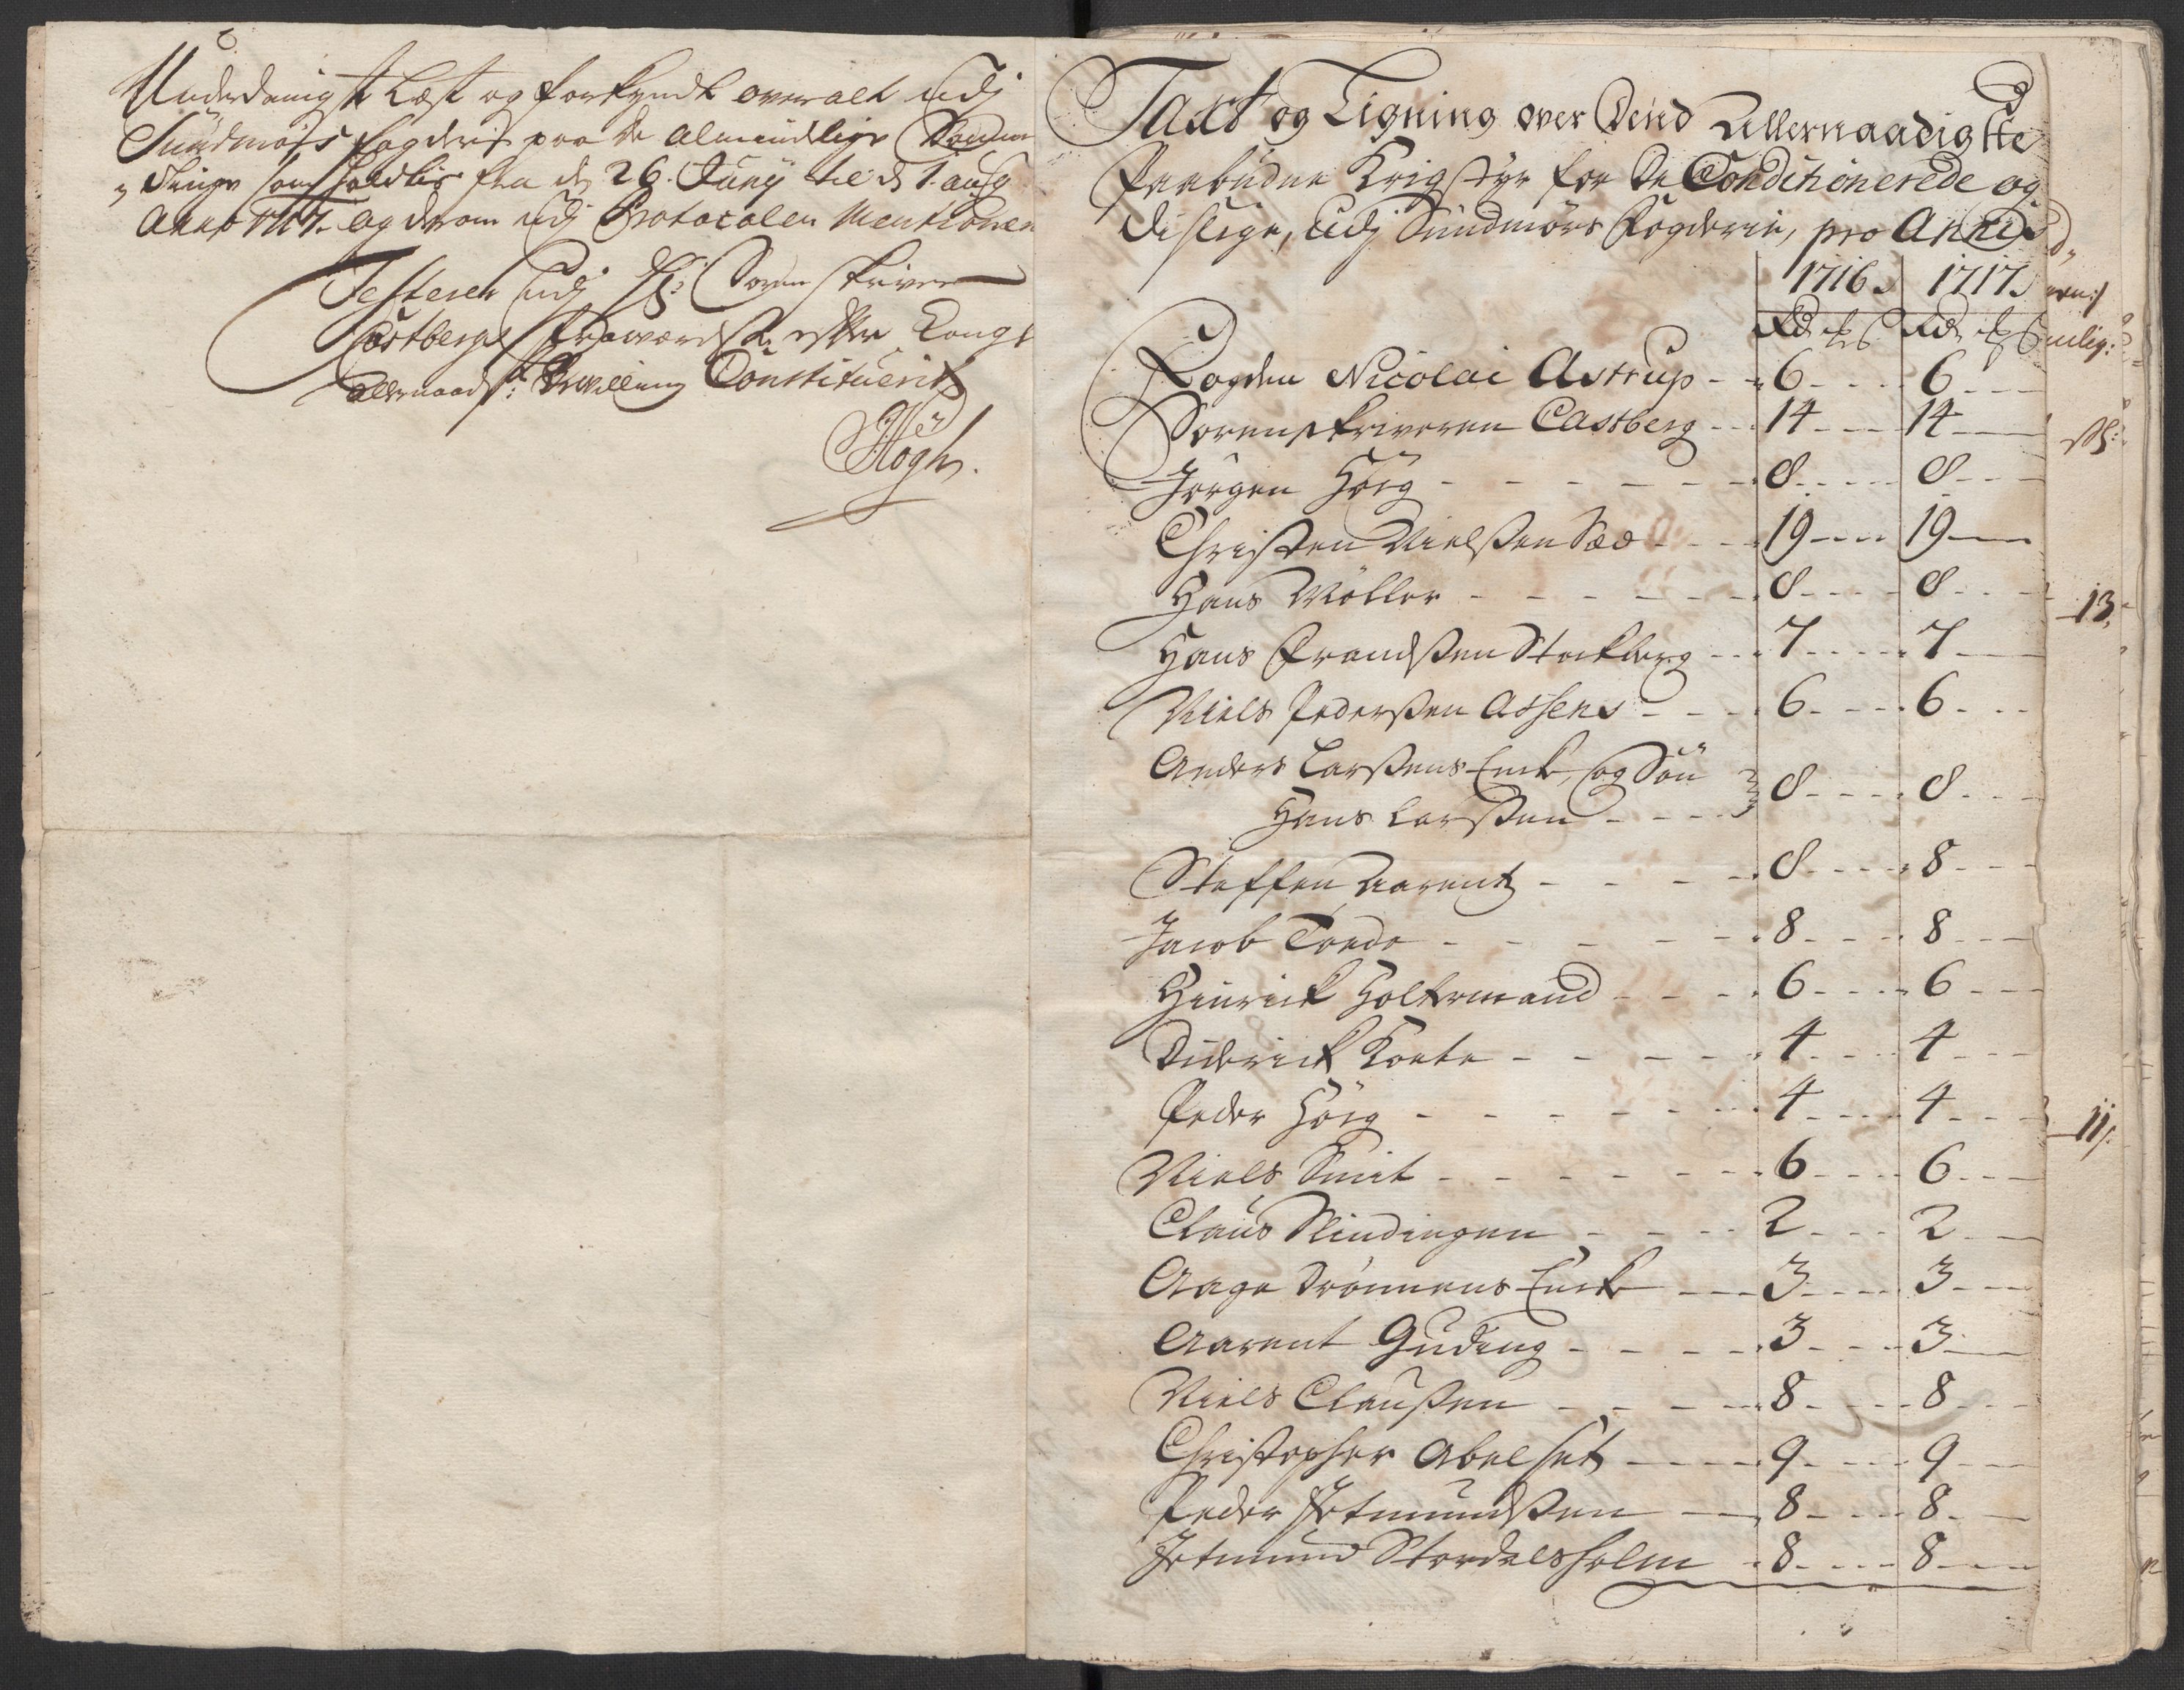 Underdanigst Læst og forkyndt overalt udj
Sundmørs fogderi paa de Almindelige Sommer
Tinge som holdtis fra d: 26. Juny til d 1. aug
Anno 1717. og derom udj Protocolen Mentionert
Testerer udj Sr: Sorenskriver
Castbergs fraværelse efter Kongl
allernaadst: Bevilling Constituerit
Høgh.
Taxt og Ligning over Dend Allernaadigste
Paabudne Krigstyr for De Conditionerede og
Deslige, udj Sundmørs Fogderie, pro Annis
1716. 1717.
Rd Rd
Fogden Nicolai Astrup - - 6 - - - 6
Sorenskriveren Castberg - - 14 - - - 14
Jørgen Høeg - - - 8 - - - 8
Christen Nielßen Sæd - - - 19 - - - 19
Hans Møller - - - 8 - - - 8
Hans Frandßen Stockberg - - - 7 - - - 7
Niels Pederßen Assens - - - 6 - - - 6
Anders Larßens Encke, og Søn
Hans Larßen - - - 8 - - - 8
Steffen Aarent - - - 8 - - - 8
Jacob Tonde - - - 8 - - - 8
Hinrick Holtermand - - - 6 - - - 6
Diderick Koete - - - 4 - - - 4
Peder Høeg - - - 4 - - - 4
Niels Smit - - - 6 - - - 6
Claus Nindingen - - - 2 - - - 2
Aage Drønnens Encke - - - 3 - - - 3
Aarent Guding - - - 3 - - - 3
Niels Claußen - - - 8 - - - 8
Christopher Abelset - - - 9 - - - 9
Peder Jetmundßen - - - 8 - - - 8
Jetmund Stordalsholm - 8 - - - 8
13
11